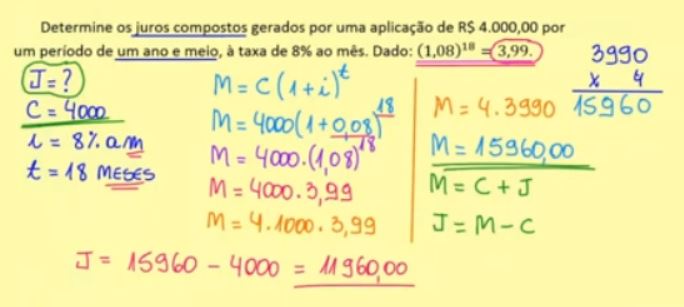 Determine os juros compostos gerados por uma aplicação de R$ 4.000,00 por
um período de um ano e meio, à taxa de 8% ao mês. Dado: (1,08)¹⁸ = 3,99.
J = ?
C = 4000
i = 8% a.m
t = 18 MESES
M = C(1+i)ᵗ
M = 4000(1+0,08)¹⁸
M = 4000.(1,08)¹⁸
M = 4000.3,99
M = 4.1000.3,99
3990
x 4
15960
M = 4.3990
M = 15960,00
M = C + J
J = M - C
J = 15960 - 4000 = 11960,00